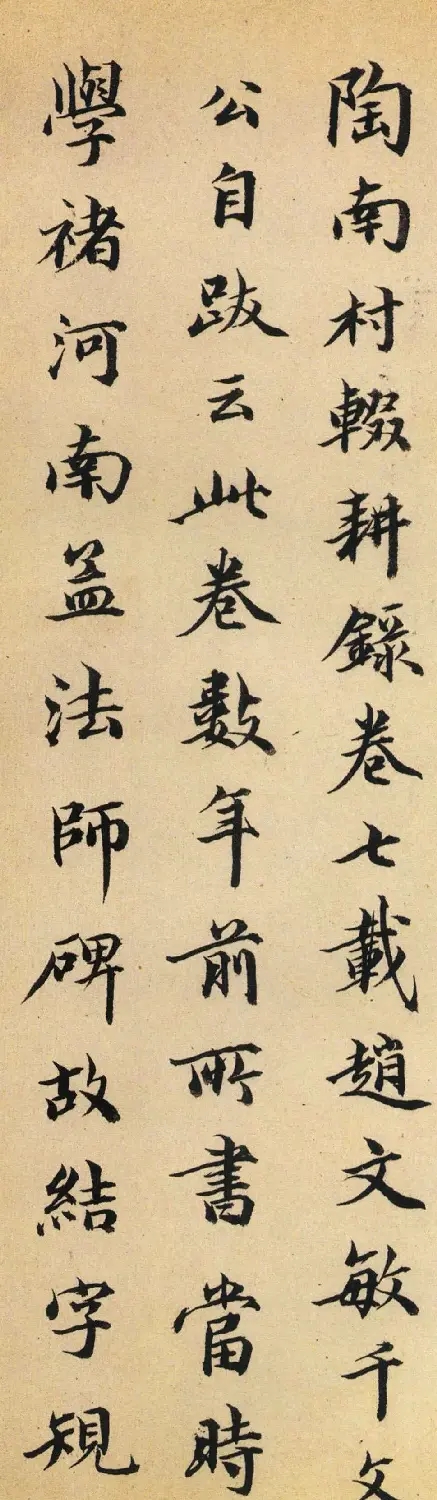 陶南村輟耕録卷七載趙文敏千文
公自跋云此卷數年前所書當時
學褚河南孟法師碑故結字規